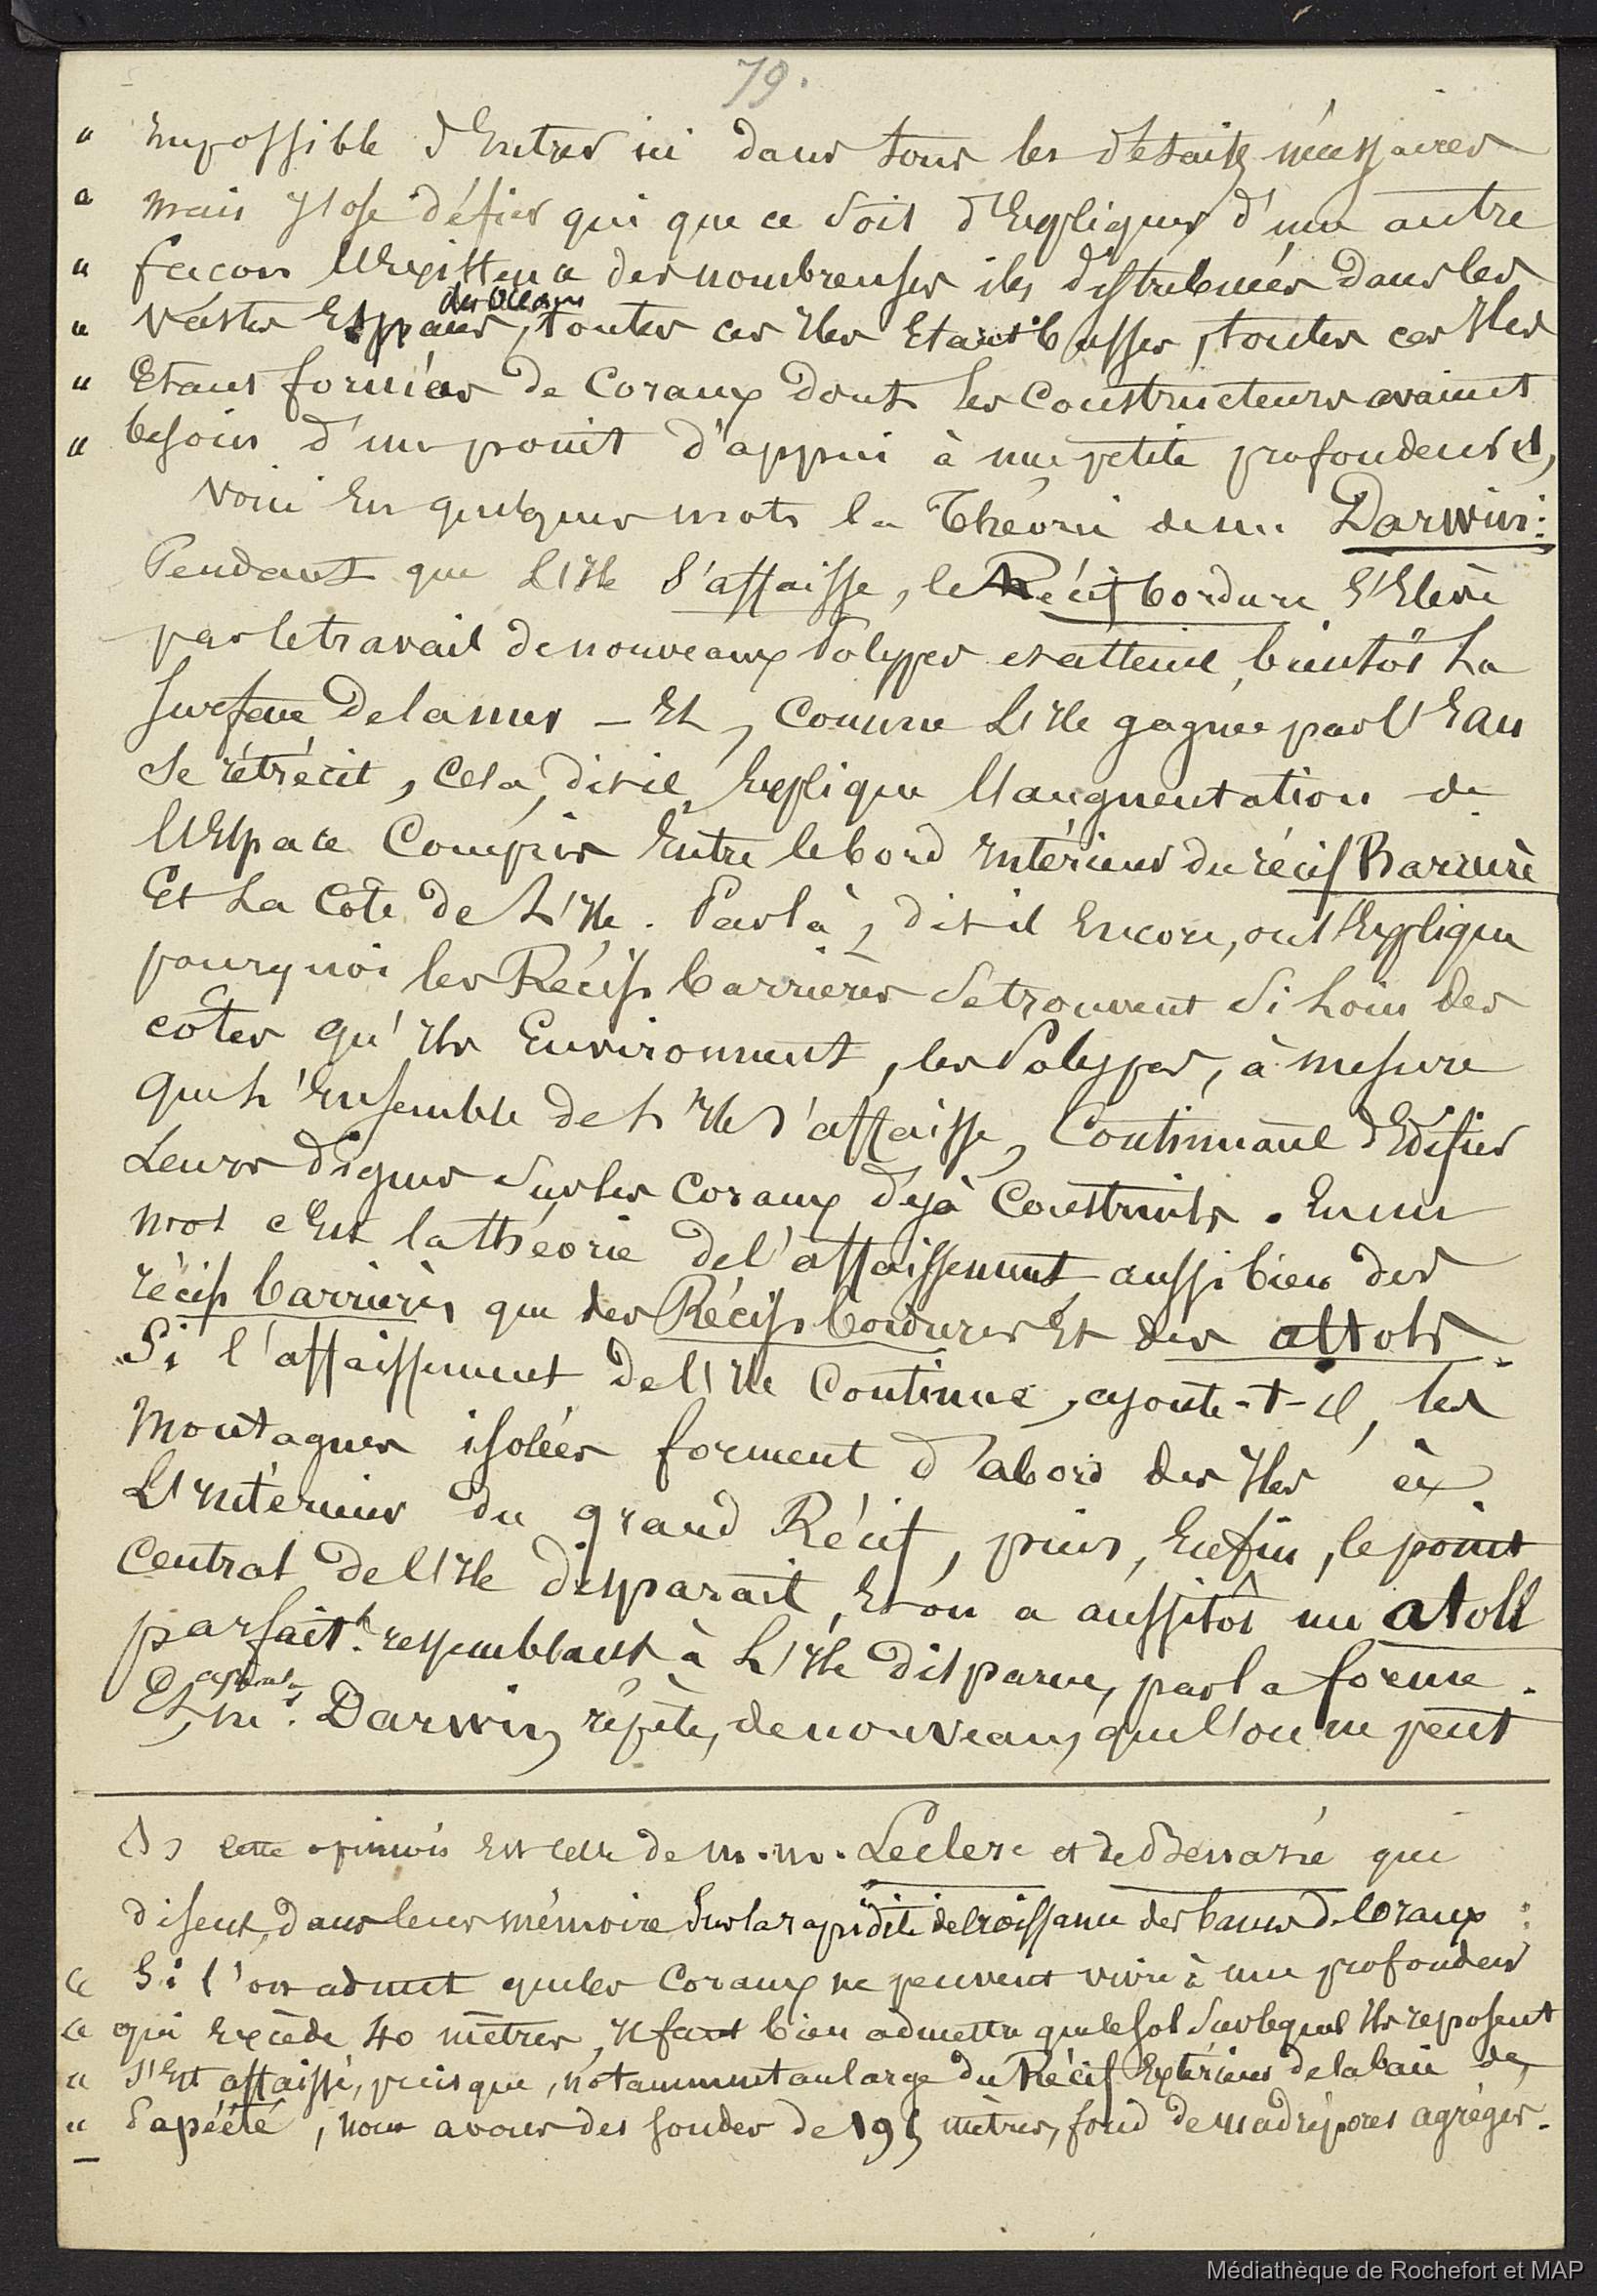 79.
" Impossible d'Entrer ici dans tous les détails nécessaires
" mais j'ose défier qui que ce soit d'Expliquer d'une autre
" façon l'Existence des nombreuses iles distribuées dans les
" vastes Espaces des Océans, toutes ces Iles Etant basses, toutes ces Iles
" Etant formées de Coraux dont les Constructeurs avaient
" besoin d'un point d'appui à une petite profondeur (1)
Voici En quelques mots la Théorie de m. Darwin:
Pendant que L'Ile s'affaisse, le Récif bordure s'Elève
par le travail de nouveaux Polypes et atteint bientôt La
surface de la mer - Et, Comme L'Ile gagnée par l'Eau
se rétrécit, Cela, dit-il, Explique l'augmentation de
l'Espace Compris Entre le bord Intérieur du récif Barrière
Et La Côte de L'Ile. Par là, dit-il Encore, on s'Explique
pourquoi les Récifs barrières se trouvent si Loin des
côtes qu'Ils Environnent, les Polypes, à mesure
que L'Ensemble de L'Ile s'affaisse, Continuant d'Edifier
Leurs digues sur les Coraux déjà Construits. En un
mot c'Est la théorie de l'affaissement aussi bien des
récifs barrières que des Récifs bordures Et des attols.
Si l'affaissement de l'Ile Continue, ajoute-t-il, les
Montagnes isolées forment d'abord des Iles à
L'Intérieur du grand Récif, puis, Enfin, le point
Central de l'Ile disparait, Et on a aussitôt un atoll
parfait.t ressemblant à L'Ile disparue, par la forme.
Et, m. Darwin répète, de nouveau, que l'on ne peut
(1) Cette opinion Est celle de m.m. Leclerc et de Bénazé qui
disent, dans leur mémoire sur la rapidité de croissance des bancs de Coraux :
" Si l'on admet que les Coraux ne peuvent vivre à une profondeur
" qui Excède 40 mètres, Il faut bien admettre que le sol sur lequel Ils reposent
" s'Est affaissé, puisque, notamment au large du Récif Extérieur de la baie de
" Papéété, nous avons des sondes de 195 mètres, fond de madrépores agrégés.
Médiathèque de Rochefort et MAP